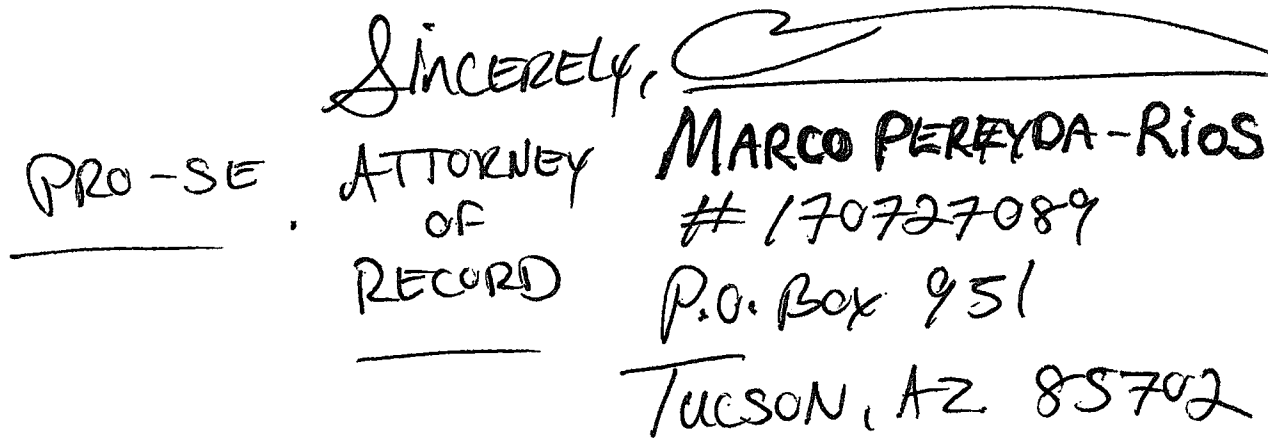 Sincerely,
PRO-SE. ATTORNEY OF RECORD
MARCO PEREYDA-RIOS
# 170727089
P.O. Box 951
TUCSON, AZ 85702